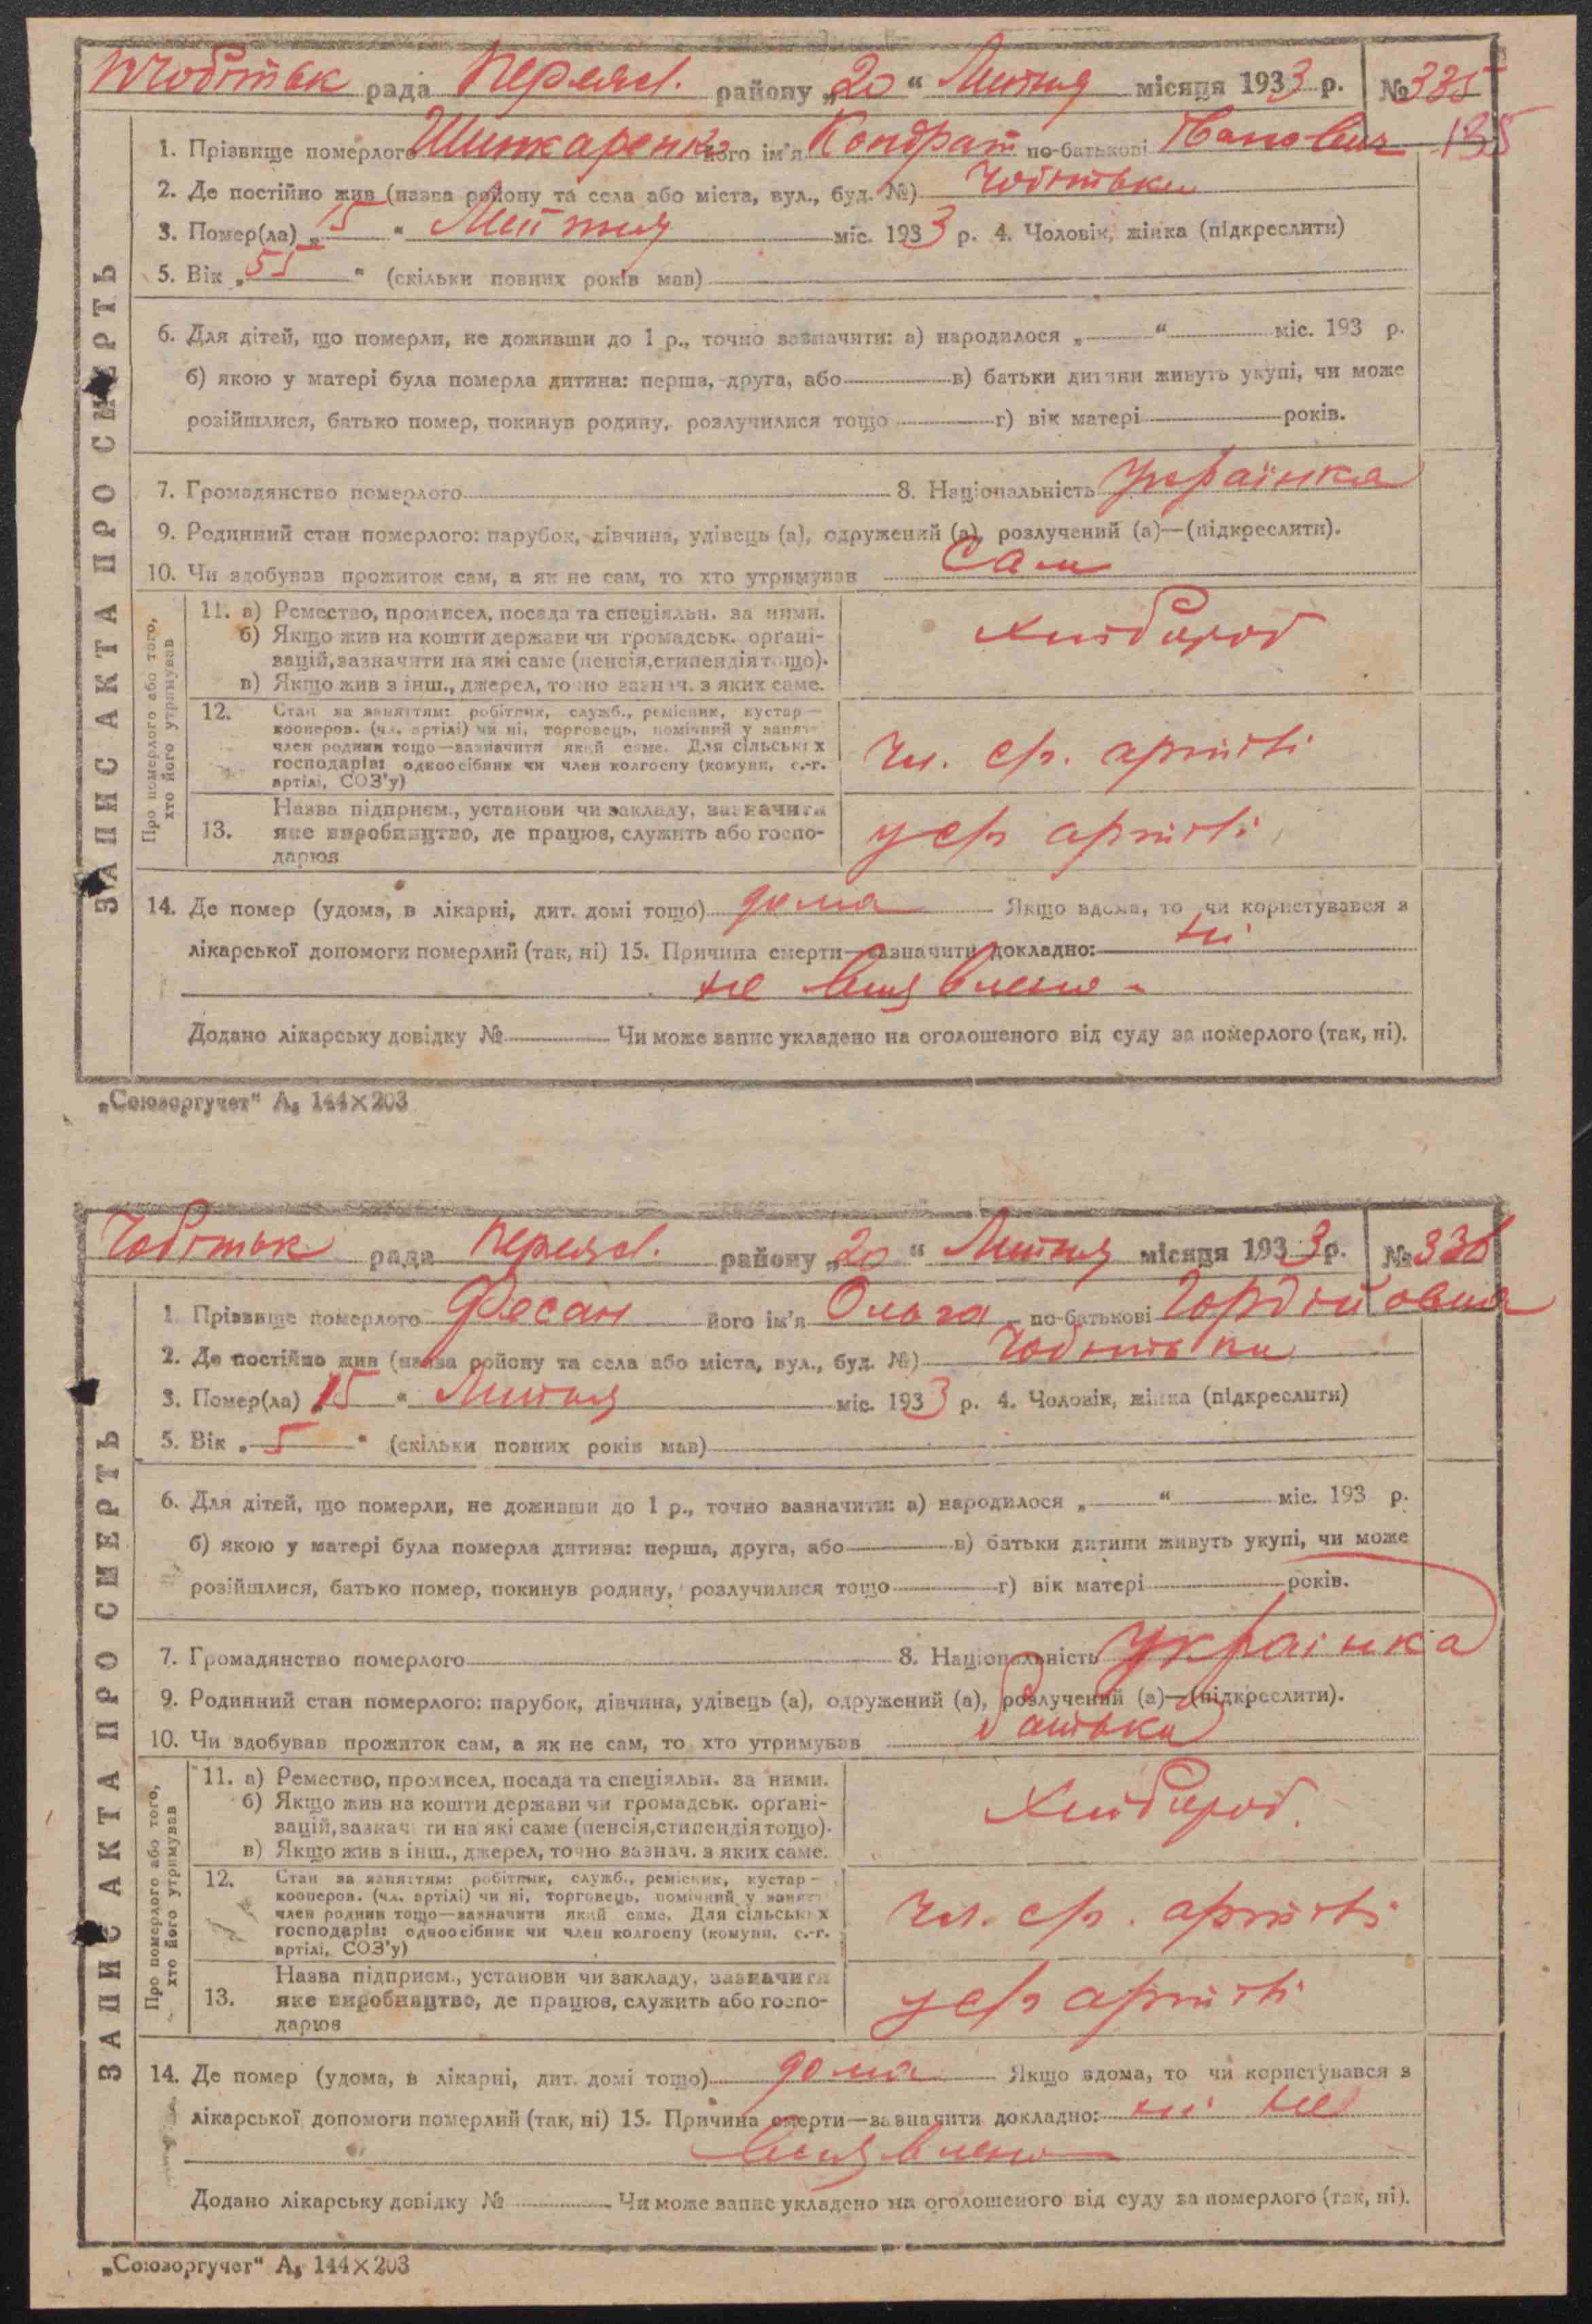 Чобітьк рада Переясл. району „20“ Липня місяця 1933 р. №335
1. Прізвище померлого Шинкаренко його ім'я Кондрат по-батькові 135
2. Де постійно жив (назва району та села або міста, вул., буд. №) Чобітьки
3. Помер(ла) „15“ Липня міс. 1933 р. 4. Чоловік, жінка (підкреслити)
5. Вік „55“ (скільки повних років мав)
6. Для дітей, що померли, не доживши до 1 р., точно зазначити: а) народилося „ “ міс. 193 р.
б) якою у матері була померла дитина: перша, друга, або в) батьки дитини живуть укупі, чи може
розійшлися, батько помер, покинув родину, розлучилися тощо г) вік матері років.
7. Громадянство померлого 8. Національність українка
9. Родинний стан померлого: парубок, дівчина, удівець (а), одружений (а), розлучений (а)—(підкреслити).
10. Чи здобував прожиток сам, а як не сам, то хто утримував Сам
ЗАПИС АКТА ПРО СМЕРТЬ
Про померлого або того,
хто його утримував
11. а) Ремество, промисел, посада та спеціяльн. за ними.
б) Якщо жив на кошти держави чи громадськ. органі-
зацій, зазначити на які саме (пенсія, стипендія тощо).
в) Якщо жив з інш., джерел, точно зазнач. з яких саме.
Хлібороб
12. Стан за заняттям: робітник, служб., ремісник, кустар—
кооперов. (чл. артілі) чи ні, торговець, помічний у занятт
член родини тощо—зазначити який саме. Для сільських
господарів: одноосібник чи член колгоспу (комуни, с.-г.
артілі, СОЗ'у)
Чл. с/г. артілі
13. Назва підприєм., установи чи закладу, зазначити
яке виробництво, де працюв, служить або госпо-
дарюв
у с/г артілі
14. Де помер (удома, в лікарні, дит. домі тощо) дома Якщо вдома, то чи користувався з
лікарської допомоги померлий (так, ні) 15. Причина смерти—зазначити докладно: ні
не виявлено
Додано лікарську довідку № Чи може запис укладено на оголошеного від суду за померлого (так, ні).
„Союзоргучет“ А₅ 144×203
Чобітьк рада Переясл. району „20“ Липня місяця 1933 р. №336
1. Прізвище померлого Фесан його ім'я Ольга по-батькові Гордійовна
2. Де постійно жив (назва району та села або міста, вул., буд. №) Чобітьки
3. Помер(ла) „15“ Липня міс. 1933 р. 4. Чоловік, жінка (підкреслити)
5. Вік „5“ (скільки повних років мав)
6. Для дітей, що померли, не доживши до 1 р., точно зазначити: а) народилося „ “ міс. 193 р.
б) якою у матері була померла дитина: перша, друга, або в) батьки дитини живуть укупі, чи може
розійшлися, батько помер, покинув родину, розлучилися тощо г) вік матері років.
7. Громадянство померлого 8. Національність українка
9. Родинний стан померлого: парубок, дівчина, удівець (а), одружений (а), розлучений (а)—(підкреслити).
10. Чи здобував прожиток сам, а як не сам, то хто утримував батьки
ЗАПИС АКТА ПРО СМЕРТЬ
Про померлого або того,
хто його утримував
11. а) Ремество, промисел, посада та спеціяльн. за ними.
б) Якщо жив на кошти держави чи громадськ. органі-
зацій, зазначити на які саме (пенсія, стипендія тощо).
в) Якщо жив з інш., джерел, точно зазнач. з яких саме.
Хлібороб.
12. Стан за заняттям: робітник, служб., ремісник, кустар—
кооперов. (чл. артілі) чи ні, торговець, помічний у занятт
член родини тощо—зазначити який саме. Для сільських
господарів: одноосібник чи член колгоспу (комуни, с.-г.
артілі, СОЗ'у)
Чл. с/г. артілі
13. Назва підприєм., установи чи закладу, зазначити
яке виробництво, де працюв, служить або госпо-
дарюв
у с/г артілі
14. Де помер (удома, в лікарні, дит. домі тощо) дома Якщо вдома, то чи користувався з
лікарської допомоги померлий (так, ні) 15. Причина смерти—зазначити докладно: ні не
виявлено
Додано лікарську довідку № Чи може запис укладено на оголошеного від суду за померлого (так, ні).
„Союзоргучет“ А₅ 144×203